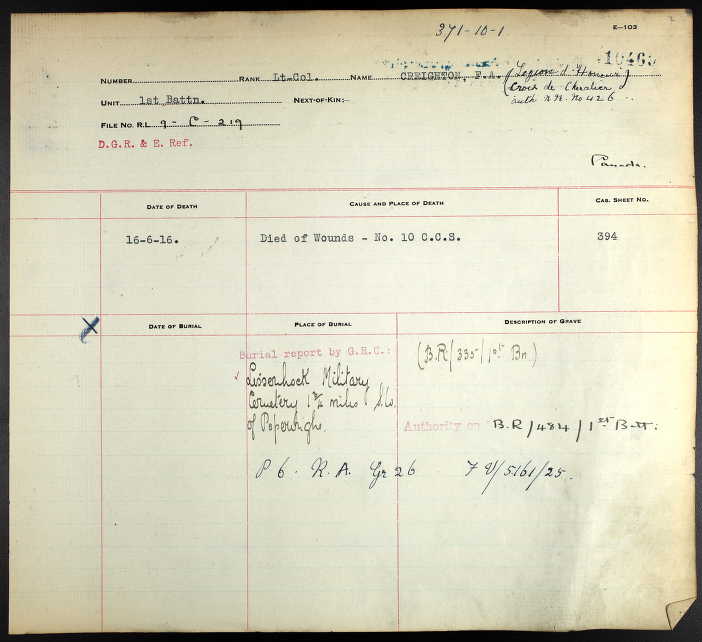 371-10-1
E-103
10463
NUMBER RANK Lt-Col. NAME CREIGHTON, F.A. (Legion d'Honeur)
Croix de Chevalier
UNIT 1st Battn. NEXT-OF-KIN:- auth R.H. No 426
FILE NO. R.L. 9 - C - 219
D.G.R. & E. Ref.
Canada.
DATE OF DEATH CAUSE AND PLACE OF DEATH CAS. SHEET NO.
16-6-16. Died of Wounds - No. 10 C.C.S. 394
DATE OF BURIAL PLACE OF BURIAL DESCRIPTION OF GRAVE
Burial report by G.R.C.: (B.R/335/1st Bn.)
Lissenhock Military
Cemetery 1 3/4 miles S.W.
of Poperinghe. Authority on B.R/484/1st Batt:
P 6. R. A. Gr 26 7 V/5161/25.